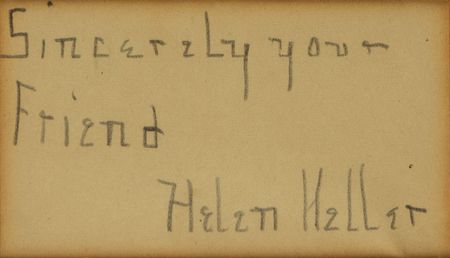 Sincerely your
Friend
Helen Keller